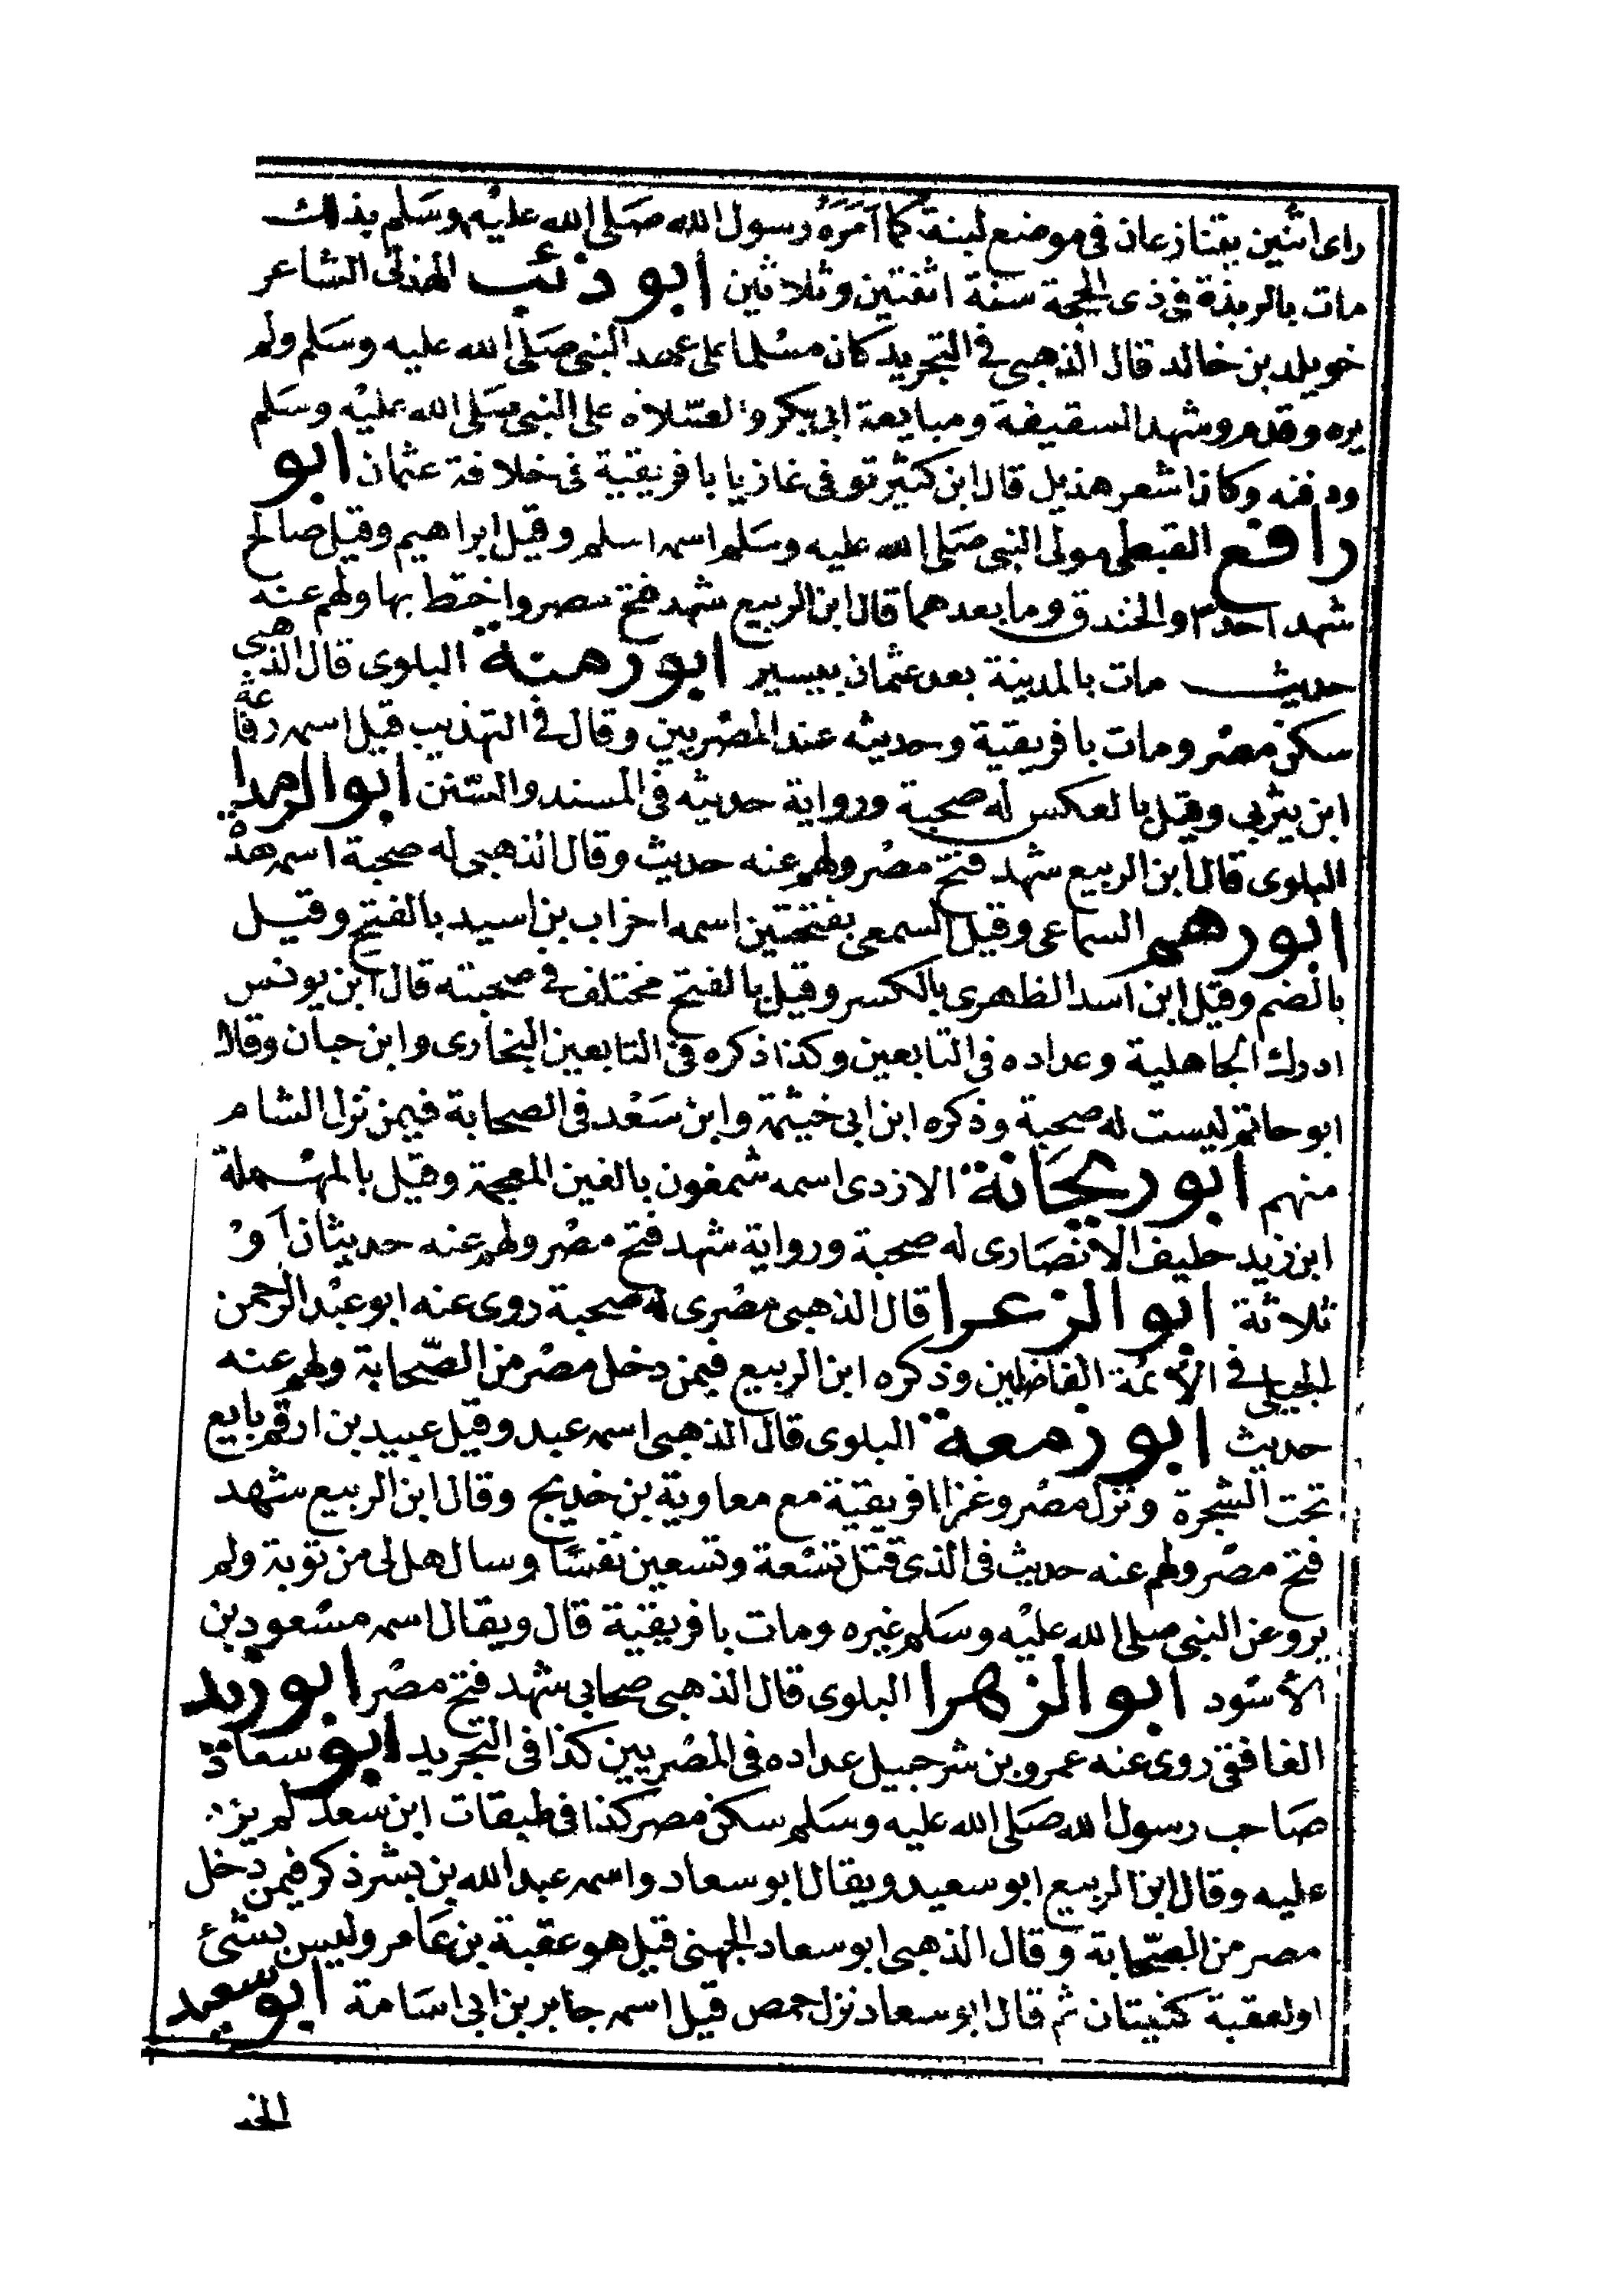 راى اثنين يتنازعان فى موضع لبنة كما آمَرَهُ رسول الله صَلى الله عليْه وسَلم بذلك
مات بالربذة فى ذى الحجة سنة اثنتين وثلاثين ابو ذئب الهذلى الشاعر
خويلد بن خالد قال الذهبى فى التجريد كان مسْلما على عهد النبى صَلى الله عليه وسَلم ولم
يره وقدم وشهد السقيفة ومبايعة ابى بكر والصّلاة على النبى صَلى الله عليْه وسَلم
ودفنه وكان اشعر هذيل قال ابن كثير توفى غازيا بافريقية فى خلافة عثمان ابو
رافع القبطى مولى النبى صَلى الله عليه وسَلم اسمه اسلم وقيل ابراهيم وقيل صالح
شهد احدا والخندق وما بعدهما قال ابن الربيع شهد فتح مصر واختط بها ولهم عنه
حديث مات بالمدينة بعد عثمان بيسير ابو رهنة البلوى قال الذهبى
سكن مصْر ومات بافريقية وحديثه عند المصْريين وقال فى التهذيب قيل اسمه رفاعة
ابن يثربى وقيل بالعكس له صحبة ورواية حديثه فى المسند والسّنن ابو الرمدا
البلوى قال ابن الربيع شهد فتح مصْر ولهم عنه حديث وقال الذهبى له صحبة اسمه هذ
ابو رهم السماعى وقيل السمعى بفتحتين اسمه احزاب بن اسيد بالفتح وقيل
بالضم وقيل ابن اسد الظهرى بالكسر وقيل بالفتح مختلف فى صحبته قال ابن يونس
ادرك الجاهلية وعداده فى التابعين وكذا ذكره فى التابعين البخارى وابن حبان وقال
ابو حاتم ليست له صحبة وذكره ابن ابى خيثمة وابن سَعْد فى الصحابة فيمن نزل الشام
منهم ابو ريحَانة الازدى اسمه شمغون بالغين المعجمة وقيل بالمهْملة
ابن زيد حليف الانصَارى له صحبة ورواية شهد فتح مصْر ولهم عنه حديثان اَوْ
ثلاثة ابو الزعرا قال الذهبى مصْرى له صحبة روى عنه ابو عبْد الرحمن
الحبلى فى الائمة الفاضلين وذكره ابن الربيع فيمن دخل مصْر من الصّحابة ولهم عنه
حديث ابو زمعة البلوى قال الذهبى اسمه عبد وقيل عبيد بن ارقم بايع
تحت الشجرة ونزل مصْر وغزا افريقيّة مع معاوية بن خديج وقال ابن الربيع شهد
فتح مصْر ولهم عنه حديث فى الذى قتل تسْعة وتسعين نفسًا وسال هل لى من توبة ولم
يرو عن النبى صلى الله عليْه وسَلم غيره ومات بافريقيْة قال ويقال اسمه مسْعود بن
الاسْود ابو الزهرا البلوى قال الذهبى صحابى شهد فتح مصْر ابو زيد
الغافقى روى عنه عمرو بن شرحبيل عداده فى المصْريين كذا فى التجريد ابو سعاد
صَاحب رسول الله صَلى الله عليه وسَلم سكن مصر كذا فى طبقات ابن سعد لم يزد
عليه وقال ابن الربيع ابو سعيد ويقال ابو سعاد واسمه عبد الله بن بشر ذكر فيمن دخل
مصر من الصّحابة وقال الذهبى ابو سعاد الجهنى قيل هو عقبة بن عَامر وليس بشئ
او لعقبة كنيتان ثم قال ابو سعاد نزل حمص قيل اسمه جابر بن ابى اسَامة ابو سعيد
الخد